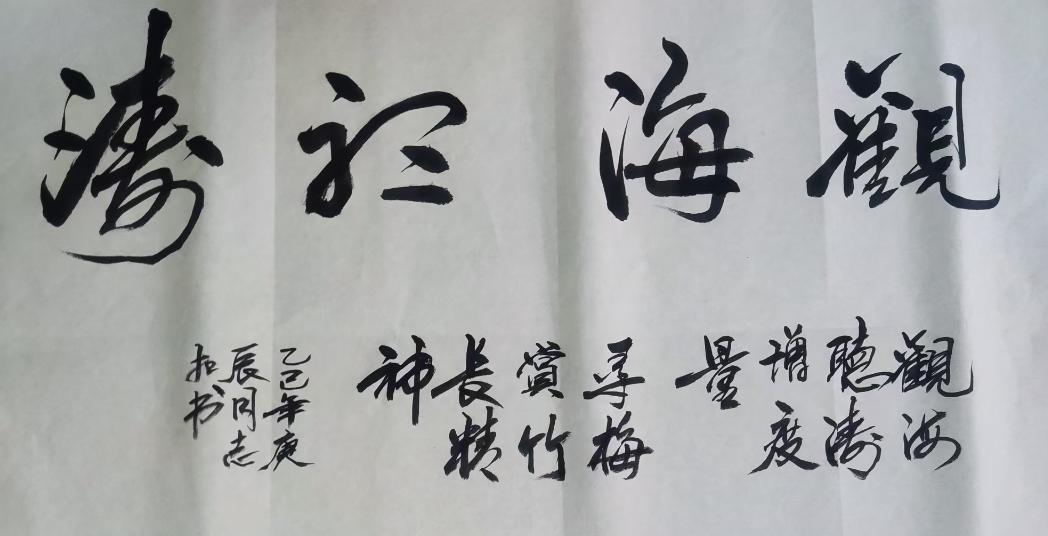 觀海聽濤
觀海
聽濤
增度
量
尋梅
賞竹
長精
神
乙巳年庚
辰同志
书